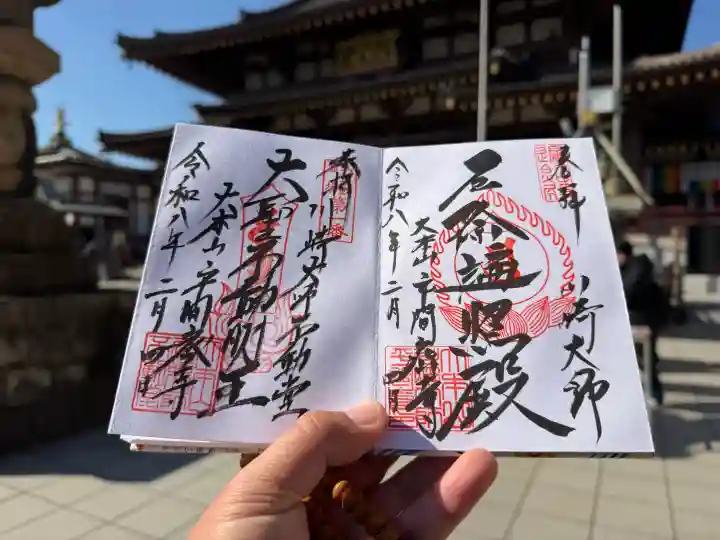 奉拝
川崎大師
厄除遍照殿
大本山平間寺
令和八年二月四日
奉拝
川崎大師不動堂
大聖不動明王
大本山平間寺
令和八年二月四日